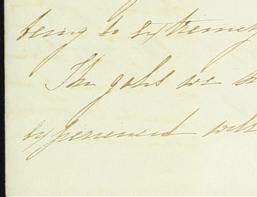 being so extremely
The gales we
experienced with